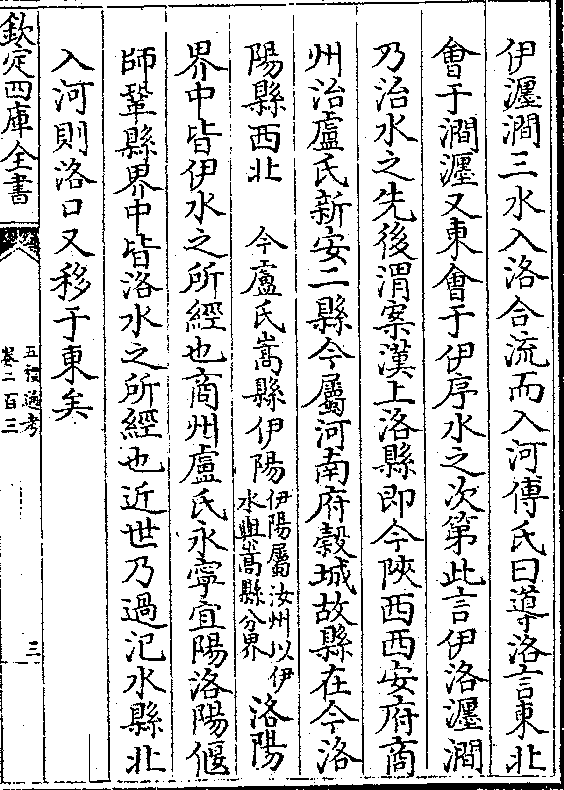 伊瀍澗三水入洛合流而入河傅氏曰導洛言東北
會于澗瀍又東會于伊序水之次第此言伊洛瀍澗
乃治水之先後渭案漢上洛縣即今陜西西安府商
州治盧氏新安二縣今屬河南府榖城故縣在今洛
陽縣西北　今盧氏嵩縣伊陽伊陽屬汝州以伊水與嵩縣分界洛陽
界中皆伊水之所經也商州盧氏永寧宜陽洛陽偃
師鞏縣界中皆洛水之所經也近世乃過汜水縣北
入河則洛口又移于東矣
欽定四庫全書
五禮通考
卷二百三
三